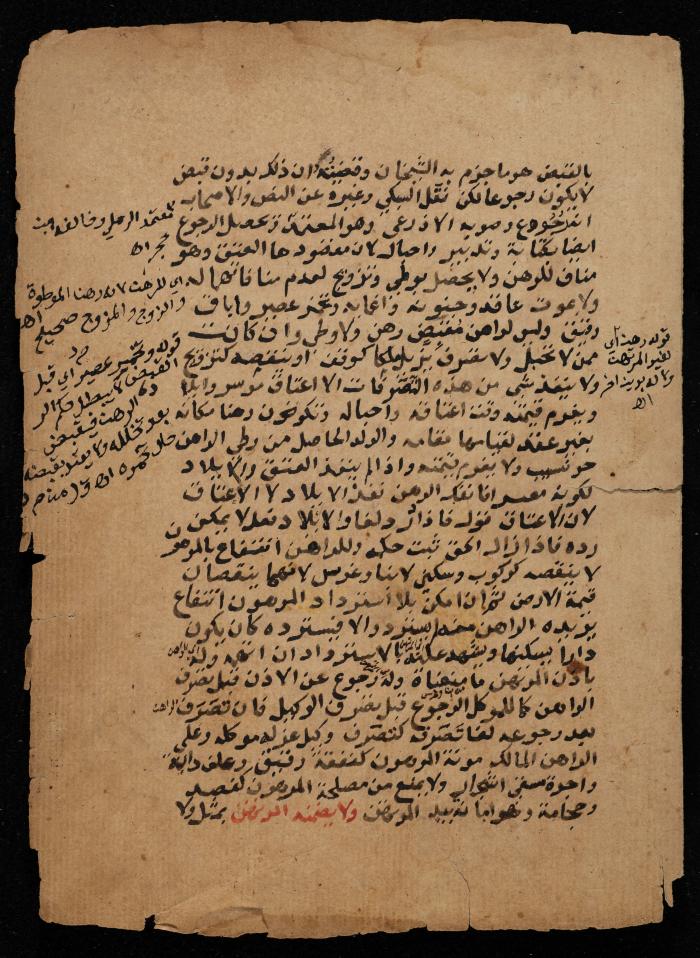 بالقبض هو ما جزم به الشيخان وقضيته ان ذلك بدون قبض
لا يكون رجوعا لكن نقل السبكي وغيره عن النص والاصحاب
انه رجوع وصوبه الاذرعي وهو المعتمد وتحصل الرجوع
ايضا بكتابة وتدبير واحبال لان مقصودها العتق وهو
مناف للرهن ولا يحصل بوطي وتزويج لعدم منافاتهما له
ولا بموت عاقد وجنونه واغمايه وتخمر عصير واباق
رقيق وليس لراهن مقبض رهن ولا وطي وان كانت
ممن لا تحبل ولا تصرف يزيل ملكا كوقف او ينقصه كتزويج
ولا ينفذ شي من هذه التصرفات الا اعتاق موسر وايلا
ويغرم قيمته وقت اعتاقه واحباله وتكون رهنا مكانه
بغير عقد لقيامها مقامه والولد الحاصل من وطي الراهن
حر نسيب ولا يغرم قيمته واذا لم ينفذ العتق والايلاد
لكونه معسرا فانفك الرهن نفذ الايلاد لا الاعتاق
لان الاعتاق قول فاذا رد لغا والايلاد فعل لا يمكن
رده فاذا زال الحق ثبت حكمه وللراهن انتفاع بالمرهون
لا ينقصه كركوب وسكني لا بنا وغرس لانهما ينقصان
قيمة الارض ثم ان امكن بلا استرداد المرهون انتفاع
يريده الراهن منه لم يسترد والا فيسترده كان يكون
دارا يسكنها ويشهد عليه بالاسترداد ان اتهمه وله
باذن المرتهن ما منعناه وله رجوع عن الاذن قبل تصرف
الراهن كما للموكل الرجوع قبل تصرف الوكيل فان تصرف
بعد رجوعه لغا تصرفه كتصرف وكيل عزله موكله وعلي
الراهن المالك مونة المرهون كنفقة رقيق وعلف دابة
واجرة سقي اشجار ولا يمنع من مصلحة المرهون كفصد
وحجامة وهو امانة بيد المرتهن ولا يضمنه المرتهن بمثل ولا
معتمد الرملي وخالفه ابن
حجر اه
اي للرهن لانه رهن الموطوة
والزوج والمزوج صحيح اه
قوله وتخمر عصير اي قبل
القبض لا يبطل حكم الرهن